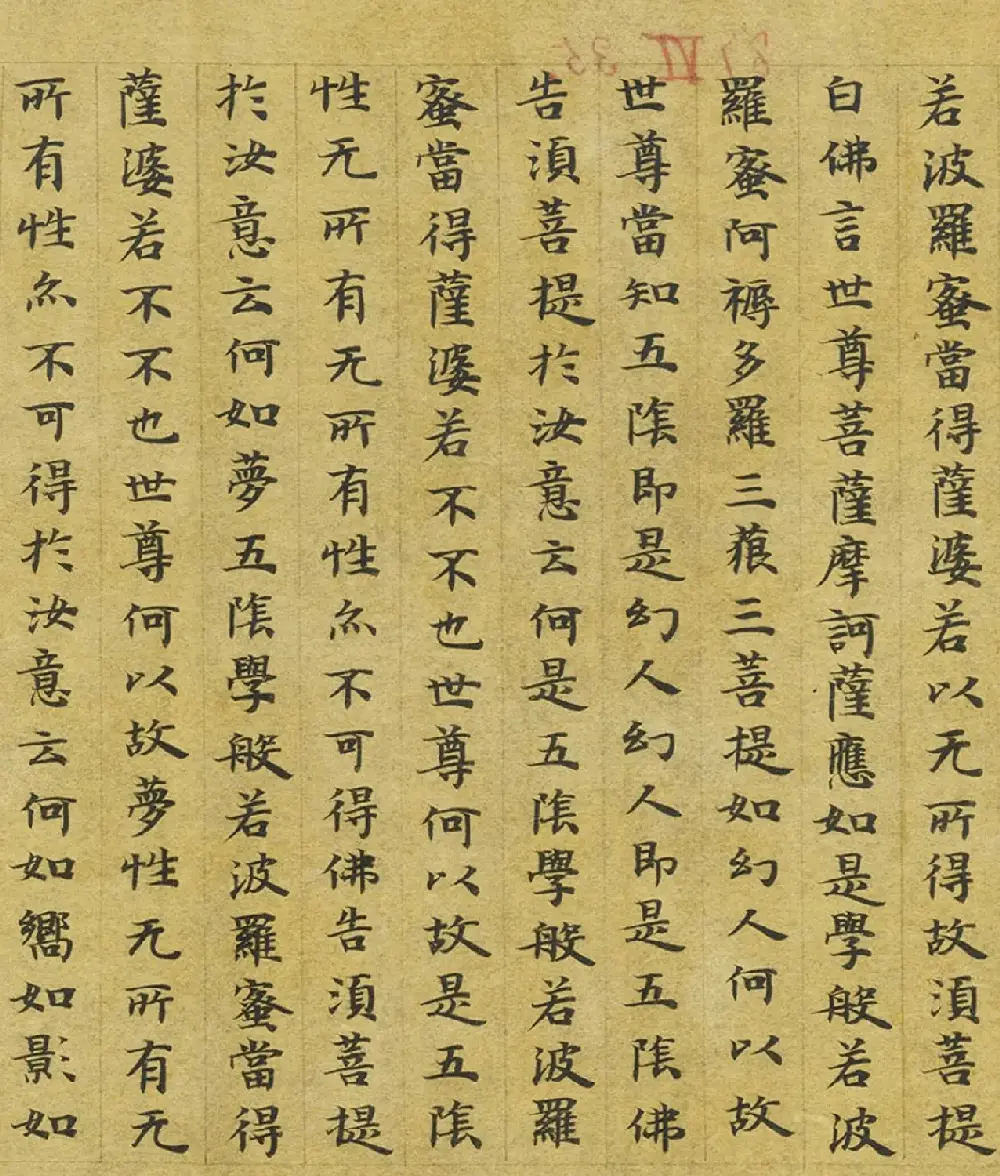 若波羅蜜當得薩婆若以无所得故湏菩提
白佛言世尊菩薩摩訶薩應如是學般若波
羅蜜阿耨多羅三藐三菩提如幻人何以故
世尊當知五陰即是幻人幻人即是五陰佛
告湏菩提於汝意云何是五陰學般若波羅
蜜當得薩婆若不不也世尊何以故是五陰
性无所有无所有性亦不可得佛告湏菩提
於汝意云何如夢五陰學般若波羅蜜當得
薩婆若不不也世尊何以故夢性无所有无
所有性亦不可得於汝意云何如嚮如影如